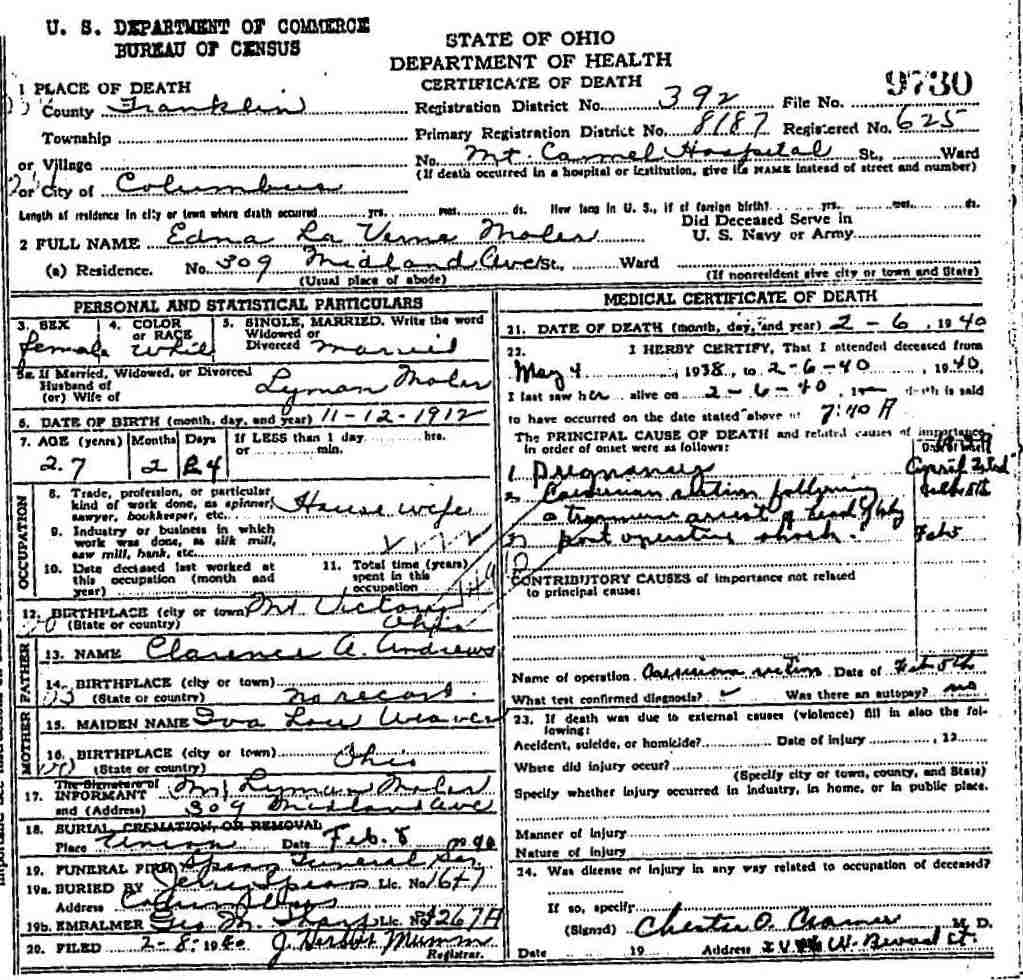 U. S. DEPARTMENT OF COMMERCE
BUREAU OF CENSUS
STATE OF OHIO
DEPARTMENT OF HEALTH
CERTIFICATE OF DEATH
9730
1 PLACE OF DEATH
County Franklin Registration District No. 392 File No.
Township Primary Registration District No. 8187 Registered No. 625
or Village No. Mt. Carmel Hospital St., Ward
(If death occurred in a hospital or institution, give its NAME instead of street and number)
or City of Columbus
Length of residence in city or town where death occurred yrs. mos. ds. How long in U. S., if of foreign birth? yrs. mos. ds.
2 FULL NAME Edna La Verne Moler Did Deceased Serve in U. S. Navy or Army
(a) Residence. No. 309 Midland Ave St., Ward
(Usual place of abode) (If nonresident give city or town and State)
PERSONAL AND STATISTICAL PARTICULARS
3. SEX female
4. COLOR or RACE
5. SINGLE, MARRIED. Write the word Widowed or Divorced
5a. If Married, Widowed, or Divorced
Husband of
(or) Wife of Lyman Moler
6. DATE OF BIRTH (month, day, and year) 11-12-1912
7. AGE (years) Months Days If LESS than 1 day hrs.
or min.
27 2 24
OCCUPATION
8. Trade, profession, or particular
kind of work done, as spinner,
sawyer, bookkeeper, etc. House wife
9. Industry or business in which
work was done, as silk mill,
saw mill, bank, etc.
10. Date deceased last worked at
this occupation (month and
year)
11. Total time (years)
spent in this
occupation
12. BIRTHPLACE (city or town) Mt Victory
(State or country) Ohio
FATHER
13. NAME Clarence A. Andrews
14. BIRTHPLACE (city or town)
(State or country) no record.
MOTHER
15. MAIDEN NAME Iva Lou Weaver
16. BIRTHPLACE (city or town)
(State or country) Ohio
17. The Signature of
INFORMANT Mr Lyman Moler
and (Address) 309 Midland Ave
18. BURIAL, CREMATION, OR REMOVAL
Place Union Date Feb. 8 1940
19. FUNERAL FIRM Spears Funeral Ser.
19a. BURIED BY Jerry Spears Lic. No. 1647
Address Columbus
19b. EMBALMER Geo M. Tharp Lic. No. 4267A
20. FILED 2-8-1940 J. Herbst Mumm
Registrar.
MEDICAL CERTIFICATE OF DEATH
21. DATE OF DEATH (month, day, and year) 2-6, 1940
22. I HERBY CERTIFY, That I attended deceased from
May 4, 1938, to 2-6-40, 1940,
I last saw her alive on 2-6-40, death is said
to have occurred on the date stated above at 7:40 A
The PRINCIPAL CAUSE OF DEATH and related causes of importance
in order of onset were as follows: Date of onset
1 Pregnancy
2 Caesarian section following
a transverse arrest of head of baby
3 post operative shock. Feb 5
CONTRIBUTORY CAUSES of importance not related
to principal cause:
Name of operation Caesarian section Date of Feb 5th
What test confirmed diagnosis? Was there an autopsy? no
23. If death was due to external causes (violence) fill in also the fol-
lowing:
Accident, suicide, or homicide? Date of injury , 19
Where did injury occur?
(Specify city or town, county, and State)
Specify whether injury occurred in industry, in home, or in public place.
Manner of injury
Nature of injury
24. Was disease or injury in any way related to occupation of deceased?
If so, specify
(Signed) Chester O. Cramer M. D.
Date 19 Address W. Broad St.